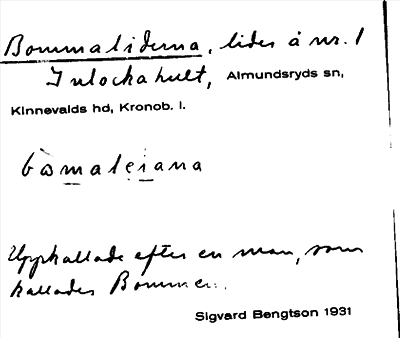 Bommaliderna, lider å nr. 1
Inlockahult, Almundsryds sn,
Kinnevalds hd, Kronob. l.
Uppkallade efter en man, som
kallades Bommen.
Sigvard Bengtson 1931